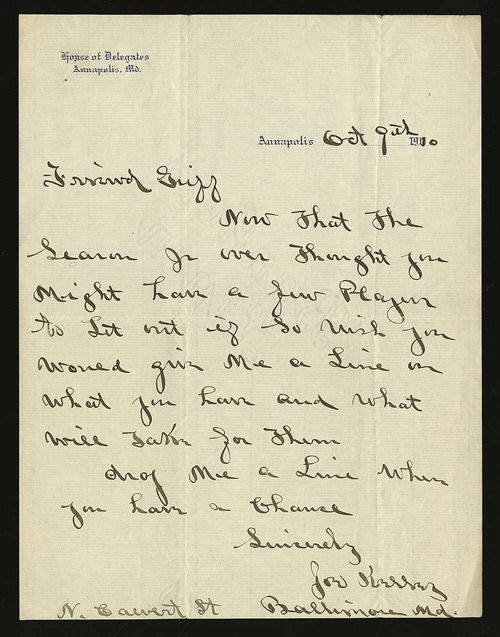 House of Delegates
Annapolis, Md.
Annapolis Oct 9th 1910
Friend Griff
Now That The
Season Is over Thought you
Might have a few Players
to Let out if So wish you
would give Me a Line on
what you have and what
will Take for Them
drop Me a Line When
you have a Chance
Sincerely
Joe Kelley
N. Calvert St Baltimore Md.